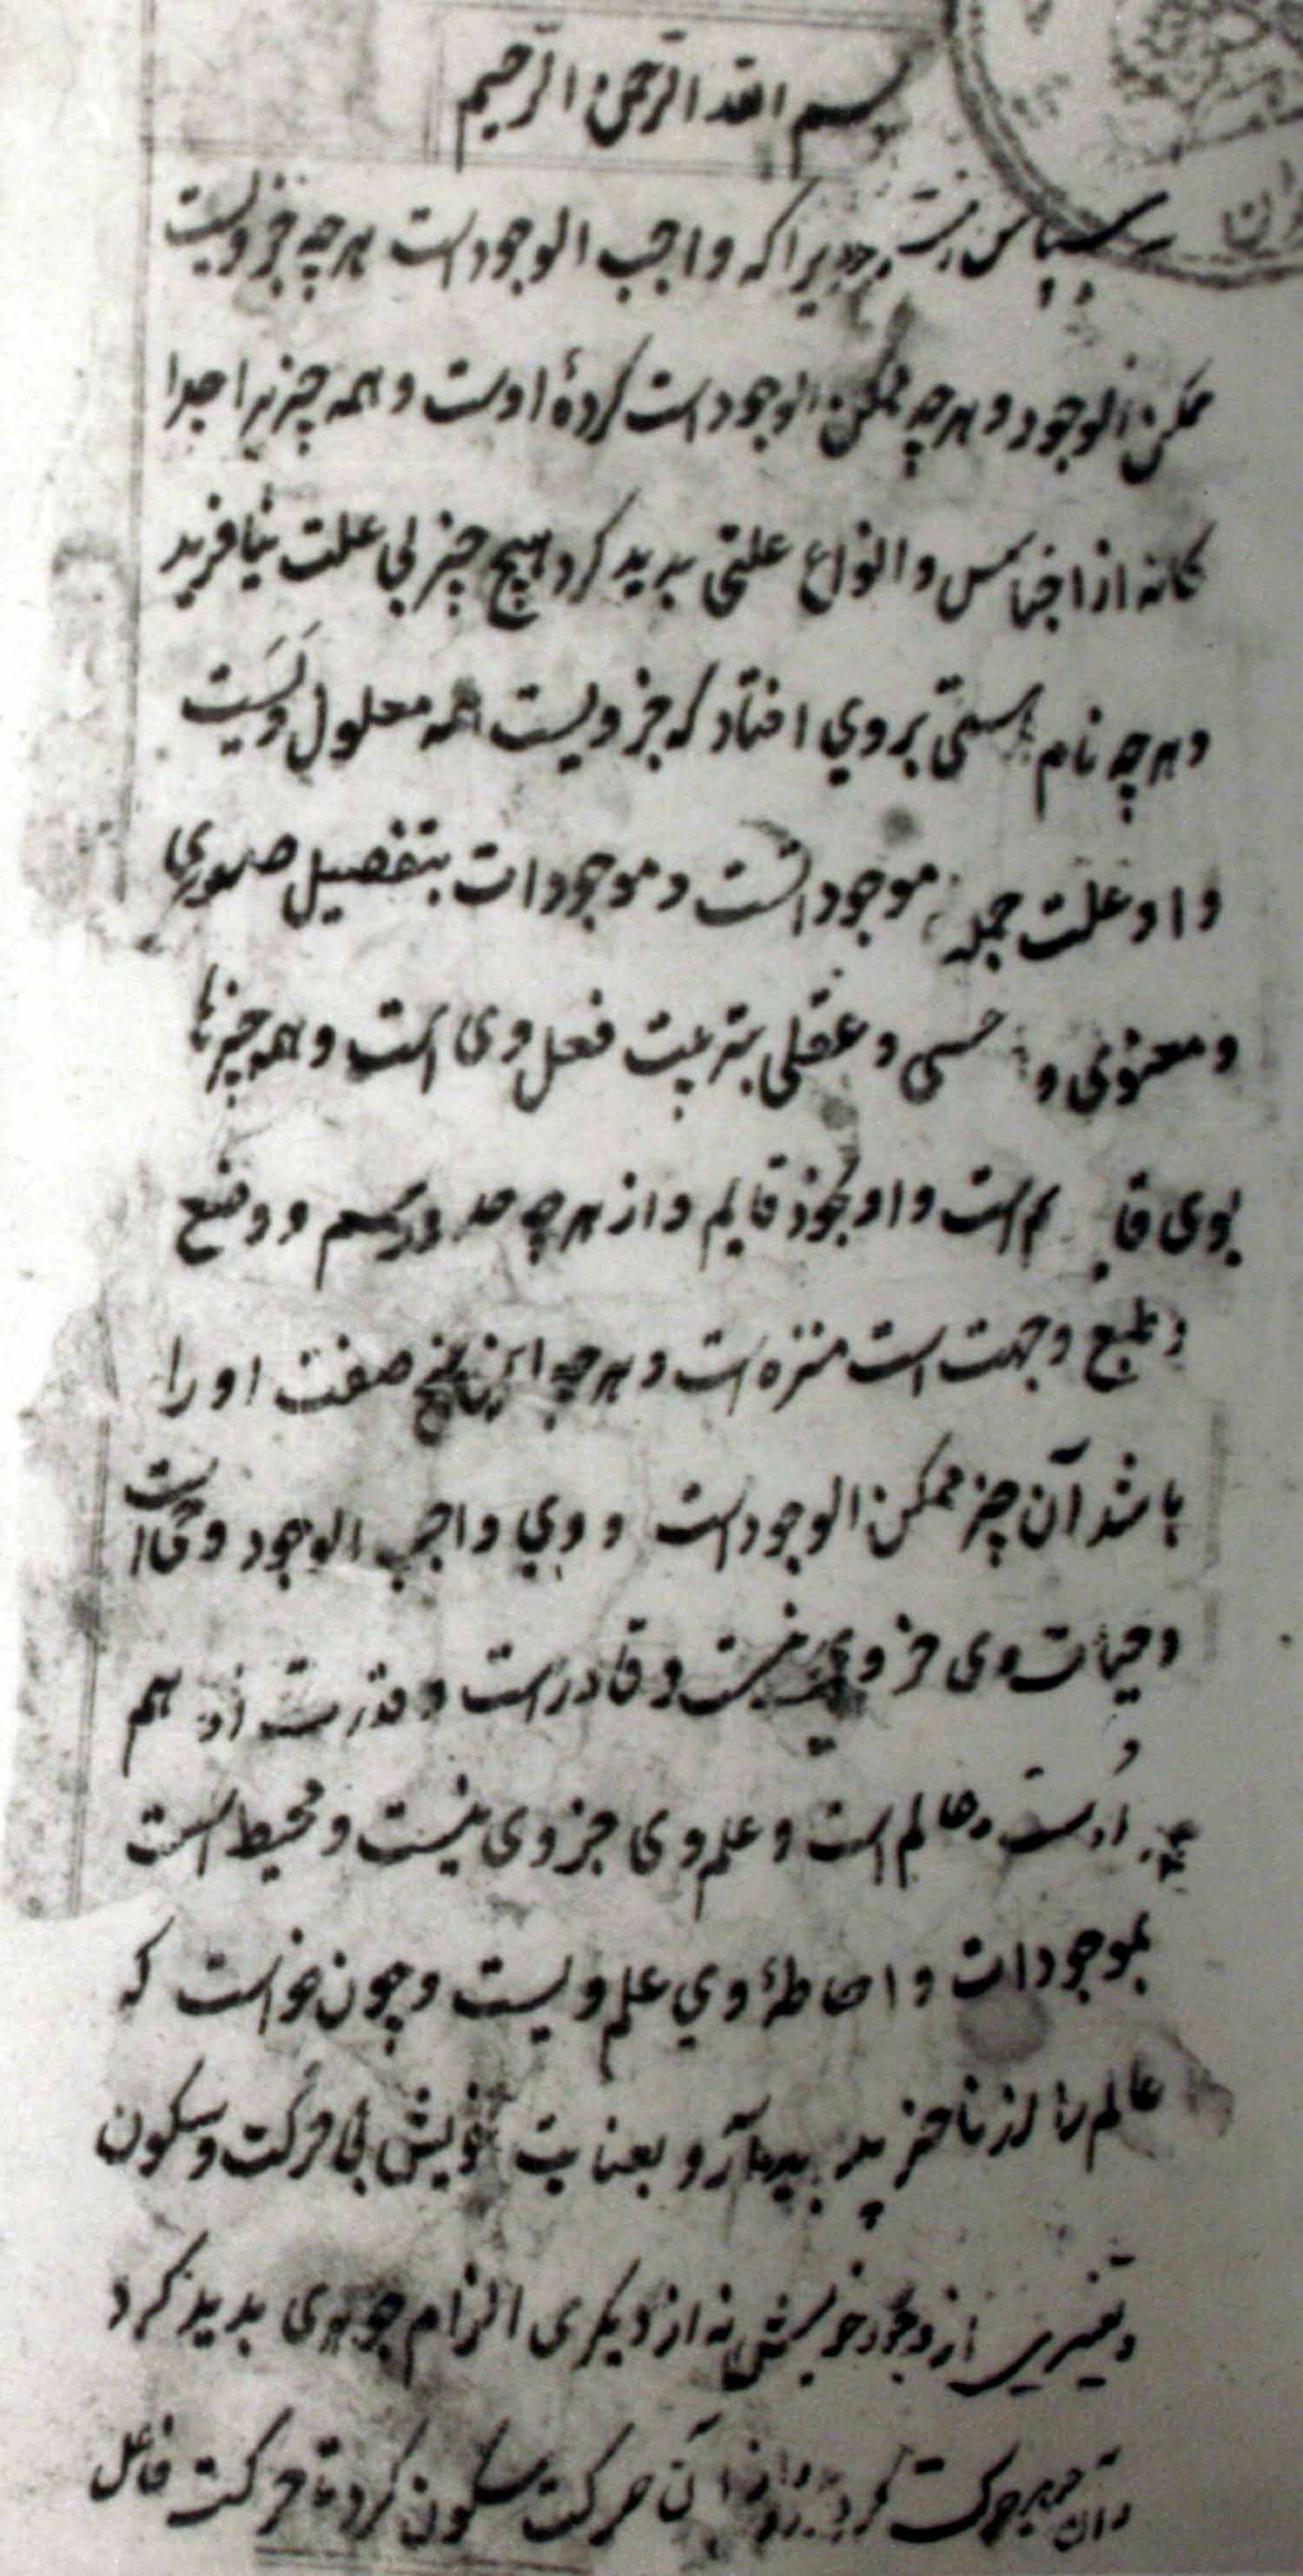 بسم الله الرحمن الرحیم
سپاس مر خدایرا که واجب الوجودست هرچه جز ویست
ممکن الوجود و هرچه ممکن الوجودست کردهٔ اوست و همه چیز را جدا
کانه از اجناس و انواع علتی پدید کرد هیچ چیز بی علت نیافرید
و هرچه نام هستی بروی افتاد که جز ویست همه معلول ویست
و او علت جمله موجوداتست و موجودات بتفصیل صوری
و معنوی و حسی و عقلی بترتیب فعل وی است و همه چیزها
بوی قایم است و او بخود قایم و از هرچه حد و رسم و وضع
و طبع و جهت است منزه است و هرچه این پنج صفت او را
باشد آن چیز ممکن الوجودست و وی واجب الوجود و حی است
و حیات وی جز وی نیست و قادرست و قدرت او هم
اوست و عالم است و علم وی جز وی نیست و محیط است
بموجودات و احاطهٔ وی علم ویست و چون خواست که
عالم را از ناچیز پدید آرد بعنایت خویش بی حرکت و سکون
و تغییری از وجود خویش نه از دیگری الزام جوهری پدید کرد
و آن جوهر حرکت کرد آن حرکت سکون کرد تا حرکت فاعل
ران